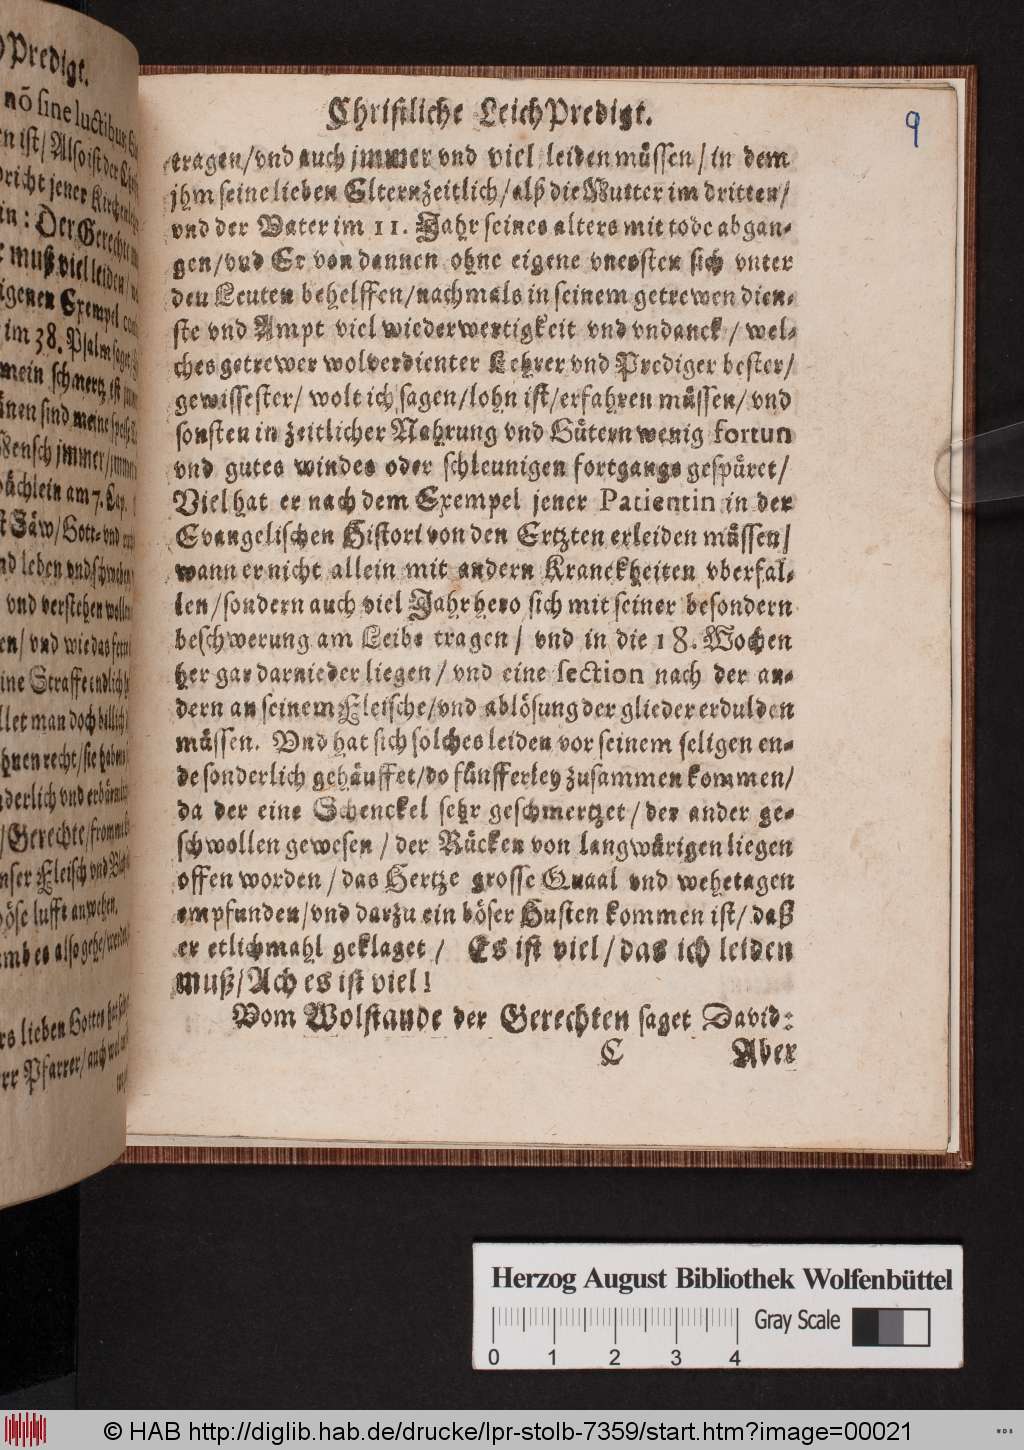 Predigt.
nõ sine luctibus
en ist/ Also ist der
richt jener
in: Der Gerechte
muß viel leiden/
igenen Exempel
im 38. Psalm sagt
mein schmertz ist
änen sind meine speise
Mensch jmmer/
ächlein am 7. Cap.
Gott- vnd
nd leben vnd
vnd verstehen wollen
en/ vnd wie das
ine Straffe endlich
llet man doch billich
hnen recht/ sie haben
derlich vnd erbärmlich
/ Gerechte/ fromme
nser Fleisch vnd
öse lufft anwehen.
umb es also gehe/
rs lieben Gottes
rr Pfarrer/ auch
Christliche LeichPredigt.
9
tragen/ vnd auch jmmer vnd viel leiden müssen/ in dem
jhm seine lieben Eltern zeitlich/ alß die Mutter im dritten/
vnd der Vater im 11. Jahr seines alters mit tode abgan-
gen/ vnd Er von dannen ohne eigene vnkosten sich vnter
den Leuten behelffen/ nachmals in seinem getrewen dien-
ste vnd Ampt viel wiederwertigkeit vnd vndanck/ wel-
ches getrewer wolverdienter Lehrer vnd Prediger bester/
gewissester/ wolt ich sagen/ lohn ist/ erfahren müssen/ vnd
sonsten in zeitlicher Nahrung vnd Gütern wenig fortun
vnd gutes windes oder schleunigen fortgangs gespüret/
Viel hat er nach dem Exempel jener Patientin in der
Evangelischen Histori von den Ertzten erleiden müssen/
wann er nicht allein mit andern Kranckheiten vberfal-
len/ sondern auch viel Jahr hero sich mit seiner besondern
beschwerung am Leibe tragen/ vnd in die 18. Wochen
her gar darnieder liegen/ vnd eine section nach der an-
dern an seinem Fleische/ vnd ablösung der glieder erdulden
müssen. Vnd hat sich solches leiden vor seinem seligen en-
de sonderlich gehäuffet/ do fünfferley zusammen kommen/
da der eine Schenckel sehr geschmertzet/ der ander ge-
schwollen gewesen/ der Rücken von langwürigen liegen
offen worden/ das Hertze grosse Quaal vnd wehetagen
empfunden/ vnd darzu ein böser Husten kommen ist/ daß
er etlichmahl geklaget/ Es ist viel/ das ich leiden
muß/ Ach es ist viel!
Vom Wolstande der Gerechten saget David:
C Aber
Herzog August Bibliothek Wolfenbüttel
0 1 2 3 4 Gray Scale
© HAB http://diglib.hab.de/drucke/lpr-stolb-7359/start.htm?image=00021